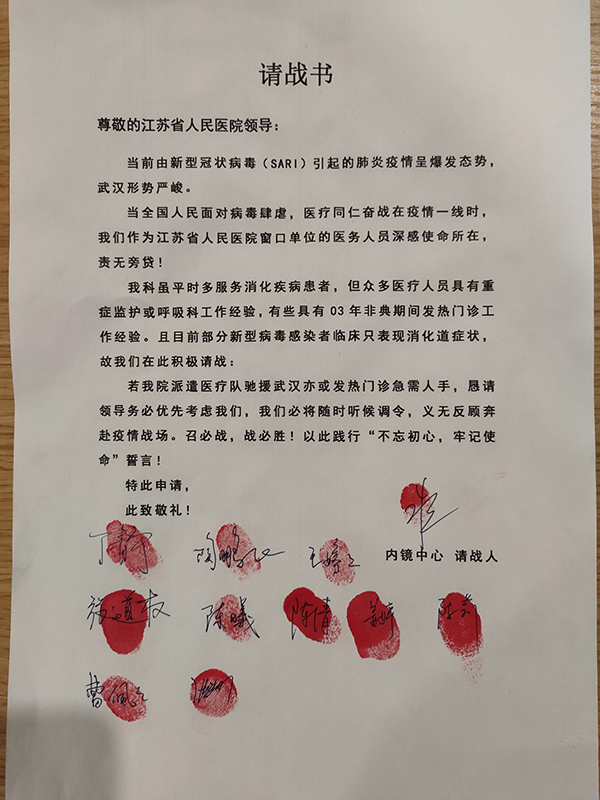 请战书
尊敬的江苏省人民医院领导：
当前由新型冠状病毒（SARI）引起的肺炎疫情呈爆发态势，
武汉形势严峻。
当全国人民面对病毒肆虐，医疗同仁奋战在疫情一线时，
我们作为江苏省人民医院窗口单位的医务人员深感使命所在，
责无旁贷！
我科虽平时多服务消化疾病患者，但众多医疗人员具有重
症监护或呼吸科工作经验，有些具有 03 年非典期间发热门诊工
作经验。且目前部分新型病毒感染者临床只表现消化道症状，
故我们在此积极请战：
若我院派遣医疗队驰援武汉亦或发热门诊急需人手，恳请
领导务必优先考虑我们，我们必将随时听候调令，义无反顾奔
赴疫情战场。召必战，战必胜！以此践行“不忘初心，牢记使
命”誓言！
特此申请，
此致敬礼！
内镜中心 请战人
丁静
王婷
陈曦 陈倩